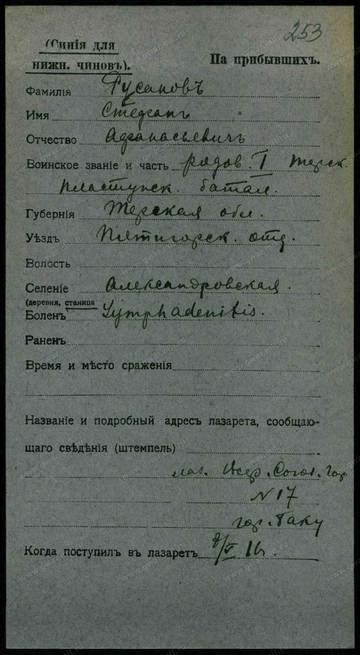 253
(Синія для
нижн. чиновъ). На прибывшихъ.
Фамилія Русановъ
Имя Стефанъ
Отчество Афанасьевичъ
Воинское званіе и часть рядов I Терск.
Пластунск. батал.
Губернія Терская обл.
Уѣздъ Пятигорск. отд.
Волость
Селеніе Александровская.
(деревня, станица
Боленъ Lymphadenitis.
Раненъ
Время и мѣсто сраженія
Названіе и подробный адресъ лазарета, сообщаю-
щаго свѣдѣнія (штемпель)
лаз. Союз. Гор
N 17
гор. Баку
Когда поступилъ въ лазаретъ 16 г.